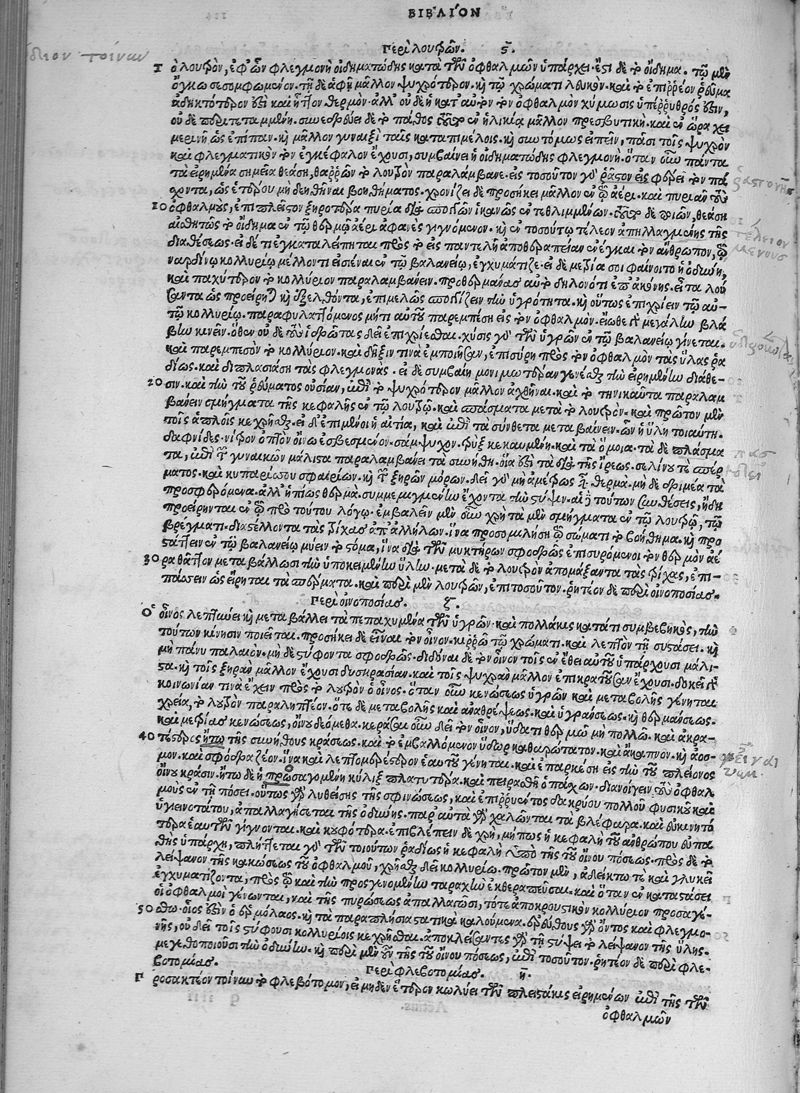 ΒΙΒΛΙΟΝ
Περὶ λουτρῶν. ϛ.
Τὸ λουτρὸν, ἐφ' ὧν φλεγμονὴ οἰδηματώδης κατὰ τῶν ὀφθαλμῶν ὑπάρχει· ἔστι δὲ τὸ οἴδημα τῷ μὲν
ὄγκῳ σεσομφωμένον· τῇ δὲ ἁφῇ μᾶλλον ψυχρότερον· καὶ τῷ χρώματι λευκόν· καὶ τὸ ἐπιρρέον ῥεῦμα
ἀδηκτότερον ἐστὶ καὶ ἧττον θερμόν· ἀλλ' οὐδὲ ἡ κατ' αὐτὸν τὸν ὀφθαλμὸν χύμωσις ὑπέρυθρός ἐστιν,
οὐδὲ περιτεταμένη· συνεδρεύει δὲ τὸ πάθος καὶ ἡλικία μᾶλλον πρεσβυτικὴ· καὶ ὥρα χει
μερινὴ ὡς ἐπίπαν· καὶ μᾶλλον γυναιξὶ ταῖς καταπιμέλοις· καὶ συντόμως εἰπεῖν, πᾶσι τοῖς ψυχρὸν
καὶ φλεγματικὸν τὸν ἐγκέφαλον ἔχουσι, συμβαίνει ἡ οἰδηματώδης φλεγμονή· ὅταν οὖν πάντα
τὰ εἰρημένα σημεῖα θεάσῃ, θαρρῶν τὸ λουτρὸν παραλάμβανε· εἰς τοσοῦτον γὰρ
χοντα, ὡς ἑτέρου μὴ δεηθῆναι βοηθήματος· χρονίζει δὲ προσήκει μᾶλλον ἐν τῷ ἀέρι· καὶ πυριᾶν τοὺς
10 ὀφθαλμοὺς, ἐπιπλεῖστον ξηροτέρᾳ πυρίᾳ διὰ σπόγγων ἱκανῶς ἐκτεθλιμμένων· θεάσῃ
αἰσθητῶς τὸ οἴδημα ἐν τῷ θερμῷ ἀέρι ἀφανὲς γιγνόμενον· καὶ ἐν τοσούτῳ τέλεον ἀπηλλαγμένης τῆς
διαθέσεως· εἰ δέ τι ἐγκαταλείπηται πρὸς τὸ εἰς παντελῆ ἀποθεραπείαν ἐνέγκαι τὸν ἄνθρωπον, τῷ
ναρδίνῳ κολλυρίῳ μέλλοντι εἰσιέναι ἐν τῷ βαλανείῳ, ἐγχυμάτιζε· εἰ δὲ μετρία σοι φαίνοιτο ἡ ὀδύνη,
καὶ παχύτερον τὸ κολλύριον παραλάμβανε· εἶτα λού
σαντα ὡς προείρηται καὶ ἐξελθόντα, ἐπιμελῶς σπογγίζειν τὴν ὑγρότητα· καὶ οὕτως ἐπιχρίειν τῷ αὐ-
τῷ κολλυρίῳ· παραφυλαττόμενος μήτι αὐτοῦ παρεμπέσῃ εἰς τὸν ὀφθαλμόν· εἴωθε γὰρ μεγάλην βλά
βην κινεῖν· ὅθεν οὐδὲ τοὺς ἱδρῶτας δεῖ ἐπιχρίεσθαι· χύσις γὰρ τῶν ὑγρῶν ἐν τῷ βαλανείῳ γίνεται·
καὶ παρεμπεσὸν τὸ κολλύριον· καὶ δῆξιν τινὰ ἐμποιῆσαν, ἐπισύρῃ πρὸς τὸν ὀφθαλμὸν τὰς ὕλας ῥα
δίως· καὶ διπλασιάσῃ τὰς φλεγμονάς· εἰ δὲ συμβαίη μονιμωτέραν γενέσθαι τὴν εἰρημένην διάθε-
20 σιν· καὶ τὴν τοῦ ῥεύματος οὐσίαν, ἐπὶ τὸ ψυχρότερον μᾶλλον ἀχθῆναι· καὶ τὸ τηνικαῦτα παραλαμ
βάνειν σμήγματα τῆς κεφαλῆς ἐν τῷ λουτρῷ· καὶ πάσματα μετὰ τὸ λουτρόν· καὶ πρῶτον μὲν
τοῖς ἁπλοῖς κεχρῆσθαι· εἰ δ' ἐπιμένοι ἡ αἰτία, καὶ ἐπὶ τὰ σύνθετα μεταβαίνειν· ὧν ἡ ὕλη τοιαύτη·
δαφνίδες· νίτρον ὀπτὸν οἴνῳ ἐσβεσμένον· σάμψυχον· τρὺξ κεκαυμένη· καὶ τὰ ὅμοια· τὰ δὲ πλάσμα
τα, ἐπὶ τῶν γυναικῶν μάλιστα παραλαμβάνειν τὰ συνήθη· οἷα ἐστὶ τὰ διὰ τῆς ἴρεως· σελίνου τὲ σπέρ
ματος· καὶ κυπαρίσσου σφαιρίων· καὶ τῶν ξηρῶν μύρων· δεῖ γὰρ μὴ ἀμέτρως θερμὰ· μὴ δὲ δριμέα τὰ
προσφερόμενα· ἀλλ' ἠπίως θερμά· συμμεμιγμένην ἔχοντα τὴν στῦψιν· αἱ γὰρ τούτων συνθέσεις, ἤδη
προείρηνται ἐν τῷ πρὸ τούτου λόγῳ· ἐμβαλεῖν μὲν οὖν χρὴ τὰ μὲν σμήγματα ἐν τῷ λουτρῷ, τῷ
βρέγματι· διαστέλλοντα τὰς τρίχας ἀπ' ἀλλήλων· ἵνα προσομιλήσῃ τῷ σώματι τὸ βοήθημα· καὶ προ
στάττειν ἐν τῷ βαλανείῳ μύειν τὸ στόμα, ἵνα διὰ τῶν μυκτήρων σφοδρῶς ἐπισυρόμενοι τὸν θερμὸν ἀέ
30 ρα θᾶττον μεταβάλλωσι τὴν ὑποκειμένην ὕλην· μετὰ δὲ τὸ λουτρὸν ἀπομάξαντα τὰς τρίχας, ἐπι-
πάσσειν ὡς εἴρηται τὰ ξηρά. καὶ περὶ μὲν λουτρῶν, ἐπὶ τοσοῦτον· ῥητέον δὲ περὶ οἰνοποσίας.
Περὶ οἰνοποσίας. ζ.
Ὁ οἶνος λεπτύνει καὶ μεταβάλλει τὰ πεπαχυμένα τῶν ὑγρῶν· καὶ πολλάκις κατά τι συμβεβηκὸς, τὴν
τούτων κίνησιν ποιεῖται· προσήκει δὲ εἶναι τὸν οἶνον· κιρρῷ τῷ χρώματι· καὶ λεπτὸν τῇ συστάσει· καὶ
μὴ πάνυ παλαιόν· μὴ δὲ στύφοντα σφοδρῶς· διδόναι δὲ τὸν οἶνον τοῖς ἐν ἔθει αὐτοῦ ὑπάρχουσι μάλι
στα· καὶ τοῖς ξηρὰν μᾶλλον ἔχουσι δυσκρασίαν· καὶ τοῖς ψυχρὰν μᾶλλον ἐπικρατοῦσαν ἔχουσι· δοκεῖ γὰρ
κοινωνίαν τινὰ ἔχειν πρὸς τὸ λουτρὸν ὁ οἶνος· ὅταν οὖν κενώσεως ὑγρῶν καὶ μεταβολῆς γένηται
χρεία, τὸ λουτρὸν παραληπτέον· ὅτε δὲ μεταβολῆς καὶ ἀναθρέψεως· καὶ ὑγράνσεως· καὶ θερμάνσεως·
καὶ μετρίας κενώσεως, οἴνου δεόμεθα· κεράσαι οὖν δεῖ τὸν οἶνον, ὕδατι θερμῷ μὴ πολλῷ· καὶ ἀκρα-
40 τέστερος ἤτω τῆς συνήθους κράσεως· καὶ τὸ ἐμβαλλόμενον ὕδωρ καθαρώτατον· καὶ ἄκαπνον· καὶ ἄοσ-
μον· καὶ σφόδρα ζέον· ἵνα καὶ λεπτομερέστερον ἑαυτοῦ γένηται· καὶ ἐπαρκέσῃ εἰς τὴν τοῦ πλείονος
οἴνου κρᾶσιν· ἤτω δὲ ἡ προσαγομένη κύλιξ πλατυτέρα· καὶ πειράσθω ὁ πάσχων διανοίγειν τοὺς ὀφθαλ
μοὺς ἐν τῇ πόσει· οὕτως γὰρ λυθείσης τῆς σφηνώσεως, καὶ ἐπιρρυέντος δακρύου πολλοῦ φυσικοῦ καὶ
ὑγιεινοτάτου, ἀπαλλαγήσεται τῆς ὀδύνης· παρ' αὐτὰ γὰρ χαλῶνται τὰ βλέφαρα· καὶ εὐκινητό
τερα ἑαυτῶν γίγνονται· καὶ κουφότερα· ἐπιβλέπειν δὲ χρὴ, μήπως ἡ κεφαλὴ τοῦ ἀνθρώπου εὐπα
θὴς ὑπάρχῃ, πλήττεται γὰρ τῶν τοιούτων ῥαδίως ἡ κεφαλὴ ὑπὸ τῆς τοῦ οἴνου πόσεως· πρὸς δὲ τὸ
λείψανον τῆς κακώσεως τοῦ ὀφθαλμοῦ, χρῆσθαι δεῖ κολλυρίῳ· πρῶτον μὲν, ἀδήκτῳ τὲ καὶ γλυκεῖ
ἐγχυματίζοντα, πρὸς τὸ καὶ τὴν προσγενομένην ταραχὴν ἐκθεραπεῦσαι· καὶ ὅταν ἐν καταστάσει
οἱ ὀφθαλμοὶ γένωνται, καὶ τῆς πυρώσεως ἀπαλλαγῶσι, τότε ἀποκρουστικὸν κολλύριον προσαγέ-
50 σθω· οἷος ἐστὶν ὁ ἑρμόλαος· καὶ τὰ παραπλήσια στατικὰ καλούμενα· ἐρεύθους γὰρ ὄντος καὶ φλεγμο-
νῆς, οὐ δεῖ τοῖς στύφουσι κολλυρίοις κεχρῆσθαι· ἀποκλείσαντες γὰρ τῇ στύψει τὸ λείψανον τῆς ὕλης,
μεγεθοποιοῦσι τὴν ὀδύνην· καὶ περὶ μὲν οὖν τῆς τοῦ οἴνου πόσεως, ἐπὶ τοσοῦτον· ῥητέον δὲ περὶ φλε-
βοτομίας.
Περὶ φλεβοτομίας. η.
Προσακτέον τοίνυν τὸ φλεβότομον, εἰ μηδὲν ἕτερον κωλύει τῶν πλειστάκις εἰρημένων ἐπὶ τῆς τῶν
ὀφθαλμῶν